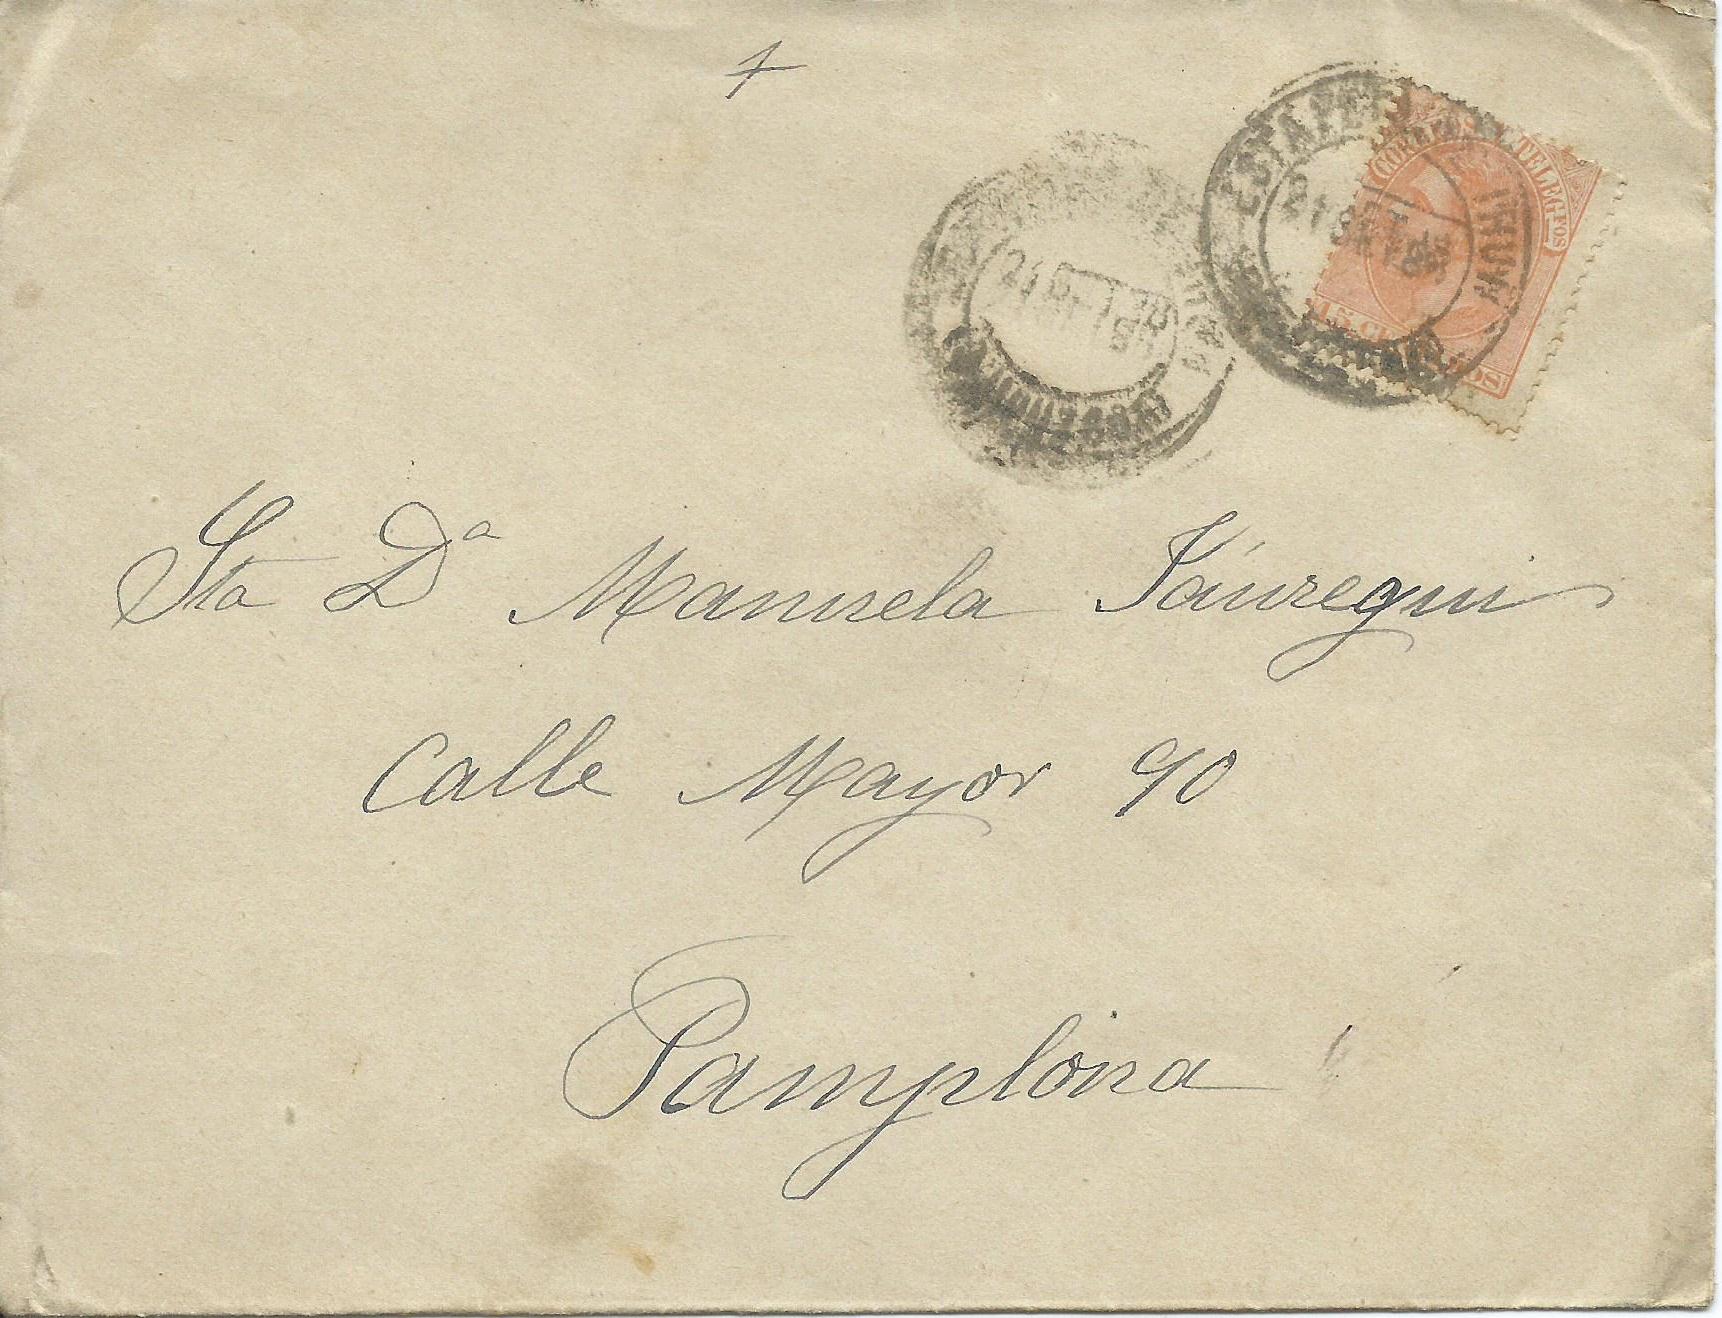 ESTAFETA
IRUN
CORREOS Y TELEGFOS
15 CENTIMOS
Sta Dª Manuela Jáuregui
Calle Mayor 90
Pamplona